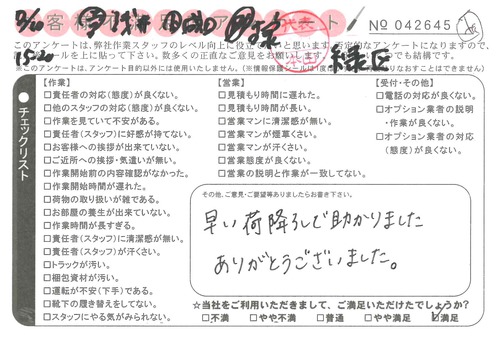 代表
No 042645
このアンケートは、弊社作業スタッフのレベル向上に役立て
19:20
緑区
チェックリスト
【作業】
□責任者の対応(態度)が良くない。
□他のスタッフの対応(態度)が良くない。
□作業を見ていて不安がある。
□責任者(スタッフ)に好感が持てない。
□お客様への挨拶が出来ていない。
□ご近所への挨拶・気遣いが無い。
□作業開始前の内容確認がなかった。
□作業開始時間が遅れた。
□荷物の取り扱いが雑である。
□お部屋の養生が出来ていない。
□作業時間が長すぎる。
□責任者(スタッフ)に清潔感が無い。
□責任者(スタッフ)が汗くさい。
□トラックが汚い。
□梱包資材が汚い。
□運転が不安(下手)である。
□靴下の履き替えをしてない。
□スタッフにやる気がみられない。
【営業】
□見積もり時間に遅れた。
□見積もり時間が長い。
□営業マンに清潔感が無い。
□営業マンが煙草くさい。
□営業マンが汗くさい。
□営業態度が良くない。
□営業の説明と作業が一致してない。
【受付・その他】
□電話の対応が良くない。
□オプション業者の説明
・作業が良くない。
□オプション業者の対応
(態度)が良くない。
その他、ご意見・ご要望等ありましたらお書き下さい。
早い荷降ろしで助かりました
ありがとうございました。
☆当社をご利用いただきまして、ご満足いただけたでしょうか?
□不満 □やや不満 □普通 □やや満足 ☑満足